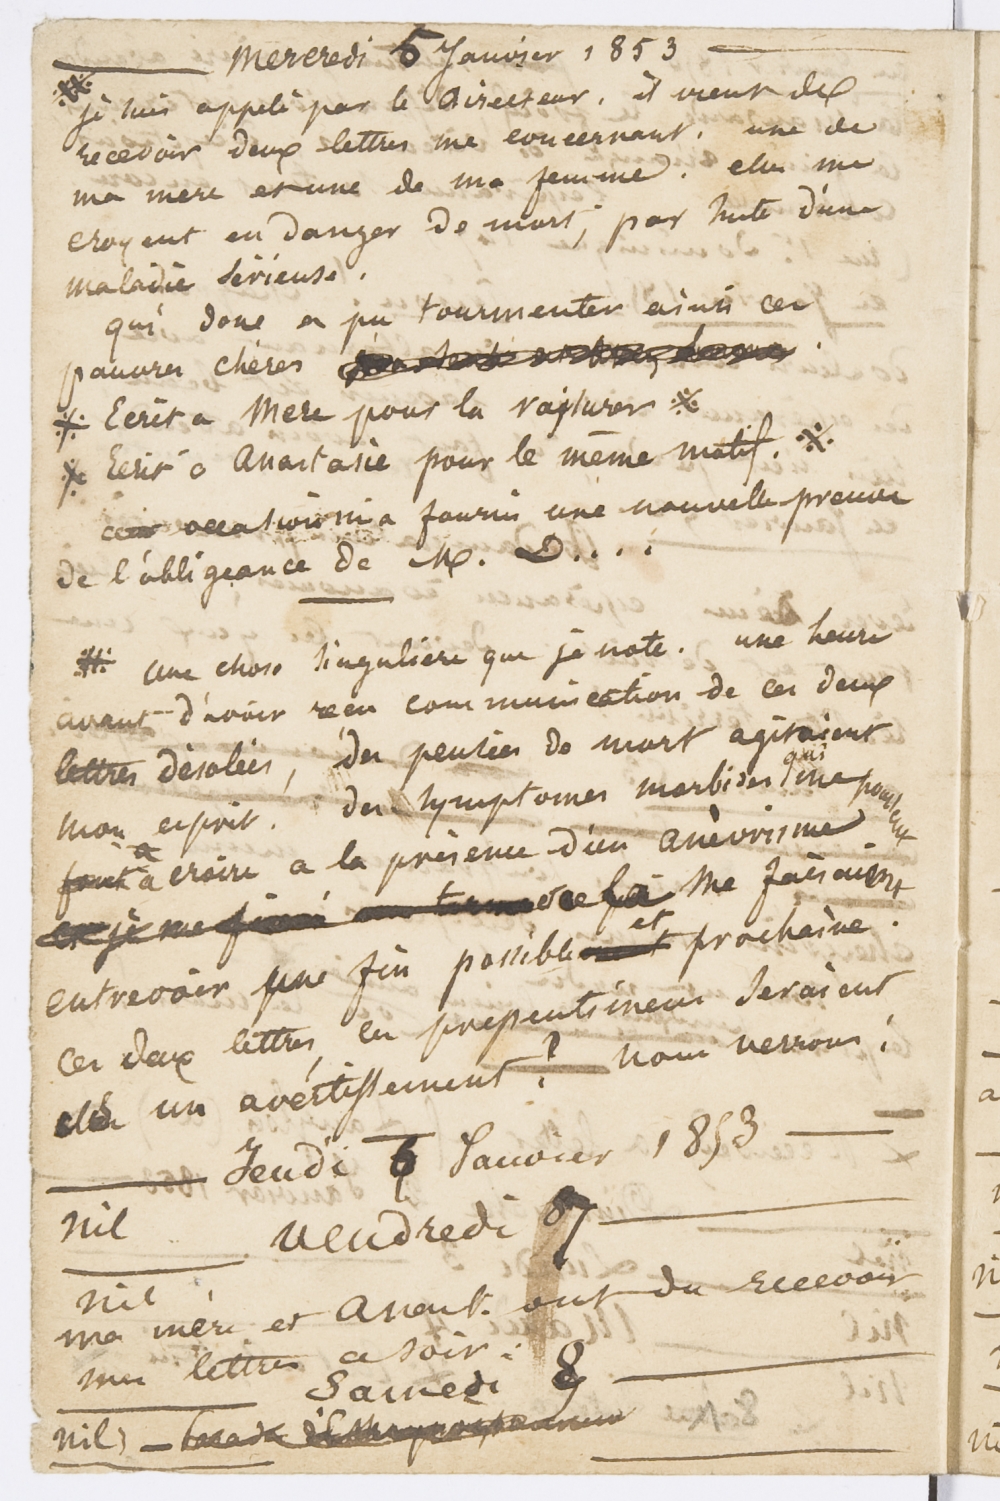 Mercredi 5 Janvier 1853
je suis appelé par le Directeur. il vient de
recevoir deux lettres me concernant. une de
ma mere et une de ma femme. elles me
croyent en danger de mort, par suite d'une
maladie sérieuse.
qui donc a pu tourmenter ainsi ces
pauvres chères
Ecrit a Mere pour la rassurer
Ecrit a Anastasie pour le même motif.
occasion m'a fourni une nouvelle preuve
de l'obligeance de M. D....
une chose singulière que je note. une heure
avant d'avoir reçu communication de ces deux
lettres désolées, des pensées de mort agitaient
mon esprit. des symptomes morbides qui me poussent
a croire a la présence d'un anèvrisme
me faisaient
entrevoir une fin possible et prochaine.
ces deux lettres, ces pressentiments seraient
un avertissement? nous verrons!
Jeudi 6 Janvier 1853
nil
vendredi 7
nil
ma mère et Anast. ont du recevoir
mes lettres ce soir.
Samedi 8
nil)